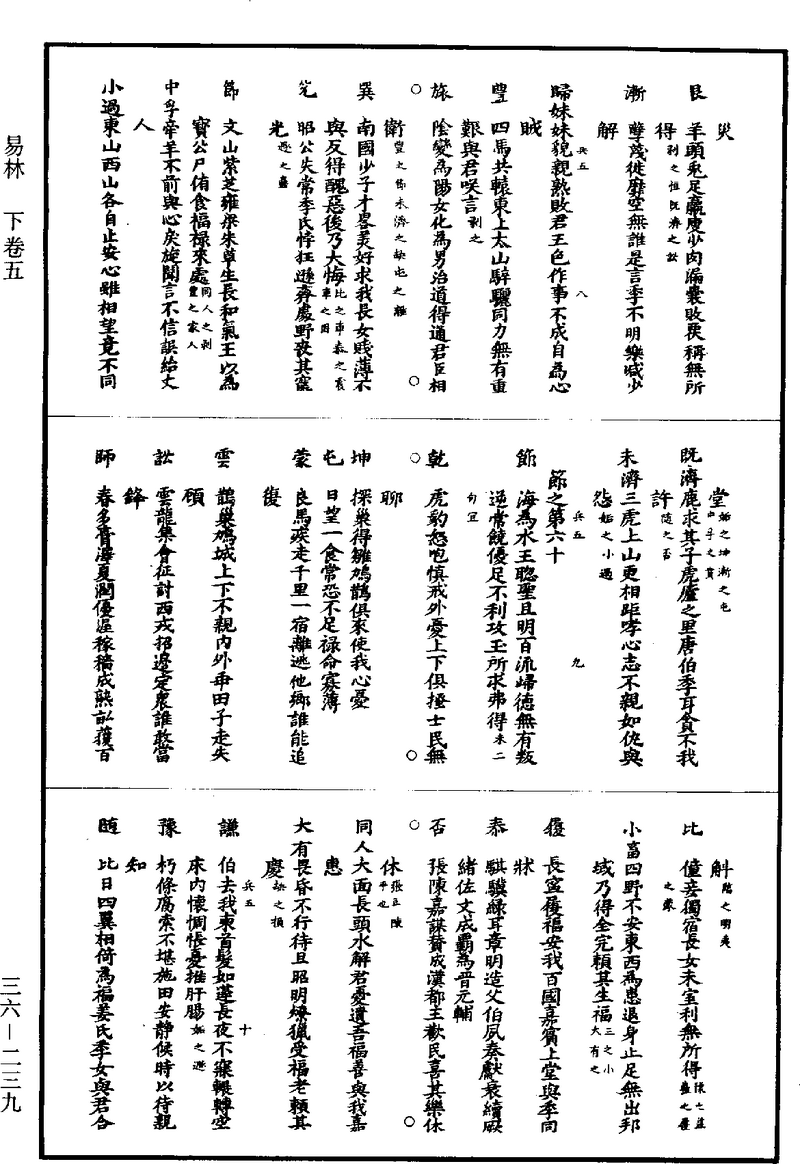 易林 下卷五
災
艮 羊頭兎足羸瘦少肉漏囊敗粟利無所
得 剥之恒既濟之訟
漸 孽蔑徙靡空無誰是言季不明樂減少
解
兵五 八
歸妹妹貌親熟敗君王色作事不成自為心
賊
豐 四馬共轅東上太山騂驪同力無有重
艱與君咲言 剥之
旅 陰變為陽女化為男治道得通君臣相
○
衛 豐之節未濟之 屯之離
巽 南國少子才畧美好求我長女賤薄不
與反得醜惡後乃大悔 比之 泰之震
兌 昭公失常季氏悖狂遜齊處野喪其寵
光 遯之蠱
節 文山紫芝雍梁朱草生長和氣王以為
寳公尸侑食福禄來處 同人之剥 豐之家人
中孚牽羊不前與心戾旋聞言不信誤紿丈
人
小過東山西山各自止安心雖相望竟不同
堂 姤之坤漸之屯 中孚之賁
既濟鹿求其子虎廬之里唐伯季耳貪不我
許 隨之否
未濟三虎上山更相距哮心志不親如仇與
怨 姤之小過
兵五 九
節之第六十
節 海為水王聦聖且明百流歸德無有叛
逆常饒優足不利攻玉所求弗得 末二
句宜
乾 虎豹怒咆慎戒外憂上下俱搔士民無
○
聊
坤 探巢得雛鳩鵲俱來使我心憂
屯 日望一食常恐不足禄命寡薄
蒙 良馬疾走千里一宿離逃他鄉誰能追
復
需 鵲巢鳩城上下不親内外乖田子走失
願
訟 雲龍集會征討西戎招邊定衆誰敢當
鋒
師 春多膏澤夏潤優渥稼穡成熟畝獲百
斛 臨之明夷
比 僮妾獨宿長女未室利無所得
之蒙
小畜四野不安東西為患退身止足無出邦
域乃得全完賴其生福 三之小 大有之
履 長寧履福安我百國嘉賓上堂與季同
牀
泰 騏驥緑耳章明造父伯夙奏獻衰續厥
緒佐文成霸為晋元輔
否 張陳嘉謀賛成漢都主歡民喜其樂休
○
休 張良陳平也
同人大面長頭水解君憂遺吾福善與我嘉
惠
大有畏昏不行待旦昭明燎獵受福老賴其
慶
兵五 十
謙 伯去我東首髮如蓬長夜不寐輾轉空
床内懷惆悵憂摧肝膓 姤之遯
豫 朽條腐索不堪施用安静候時以待親
知
隨 比目四翼相倚為福姜氏季女與君合
三六—二三九